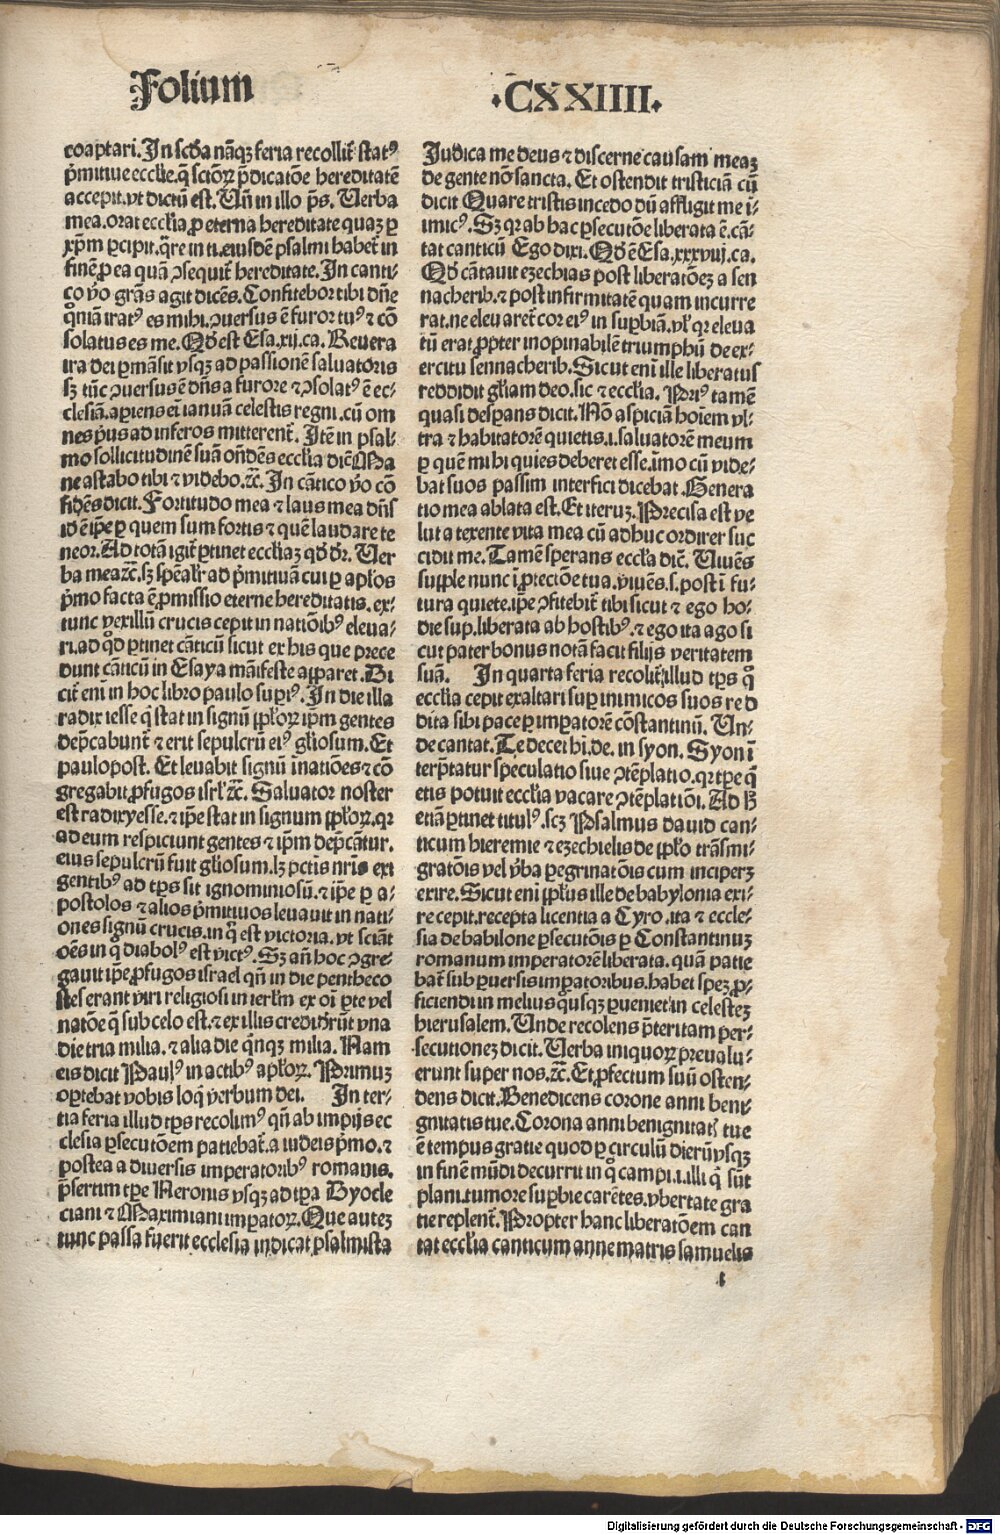 Folium
·CXXIIII·
coaptari. In scďa nãqʒ feria recollit᷑ statꝰ
pͥmitiue ecclie. ꝙ sctõꝝ p̃dicatõe hereditatẽ
accepit. vt dictũ est. Uñ in illo p̃s. Uerba
mea. orat ecclia ꝓ eterna hereditate quaʒ ꝑ
xp̃m ꝑcipit. q̃re in ti. eiusdẽ psalmi habet᷑ in
finẽ ꝓ ea quã ꝯsequit᷑ hereditate. In canti-
co ꝟo grãs agit dicẽs. Confitebor tibi dñe
qm̃niã iratꝰ es mihi. ꝯuersus ẽ furor tuꝰ ⁊ cõ
solatus es me. Qď est Esa. xij. ca. Reuera
ira dei ꝑmãsit vsqʒ ad passionẽ saluatoris
sʒ tũc ꝯuersus ẽ dñs a furore ⁊ ꝯsolatꝰ ẽ ec-
clesiã. aꝑiens ei ianuam celestis regni. cũ om
nes pͥus ad inferos mitterent᷑. Itẽ in psal-
mo sollicitudinẽ suã oñdẽs ecclia dič Ma
ne astabo tibi ⁊ videbo. ⁊č. In cãtico ꝟo cõ
fidẽs dicit. Fortitudo mea ⁊ laus mea dñs
id ẽ ip̃e ꝑ quem sum fortis ⁊ quẽ laudare te
neor. Ad totã igit᷑ ꝑtinet eccliaʒ qď dr̃. Uer
ba mea ⁊č. sʒ sp̃ealr̃ ad pͥmitiuã cui ꝑ apłos
pͥmo facta ẽ ꝓmissio eterne hereditatis. ex-
tunc vexillũ crucis cepit in natiõibꝰ eleua-
ri. ad qď ꝑtinet cãticũ sicut ex his que prece
dunt cãticũ in Esaya mãifeste apparet. Di
cit᷑ eni in hoc libro paulo supiꝰ. In die illa
radix iesse q̃ stat in signũ pplꝝ ip̃m gentes
dep̃cabunt᷑ ⁊ erit sepulcrũ eiꝰ gliosum. Et
paulopost. Et leuabit signũ in natiões ⁊ cõ
gregabit ꝓfugos isrł ⁊č. Saluator noster
est radix yesse. ⁊ ip̃e stat in signum pplꝝ. qr
ad eum respiciunt gentes ⁊ ip̃m dep̃cãtur.
eius sepulcrũ fuit gliosum. lʒ pctis nr̃is exi
gentibꝰ ad tp̃s sit ignominiosũ. ⁊ ip̃e ꝑ a-
postolos ⁊ alios pͥmitiuos leuauit in nati-
ones signũ crucis. in q̃ est victoria. vt sciãt
oẽs in q̊ diabolꝰ est victꝰ. Sʒ añ hoc ꝯgre-
gauit ip̃e ꝓfugos israel qñ in die pentheco
stes erant viri religiosi in ierłm ex oi ꝑte vel
natõe q̃ sub celo est. ⁊ ex illis credidr̃ũt vna
die tria milia. ⁊ alia die qͥnqʒ milia. Nam
eis dicit Paulꝰ in actibꝰ apłoꝝ. Primuʒ
oꝑtebat vobis loqͥ verbum dei.   In ter-
tia feria illud tp̃s recolimꝰ qñ ab impijs ec
clesia ꝑsecutõem patiebat᷑. a iudeis pͥmo. ⁊
postea a diuersis imperatoribꝰ romanis.
p̃sertim tp̃e Neronis vsqʒ ad tp̃a Dyocle
ciani ⁊ Maximiani impatoꝝ. Que auteʒ
tunc passa fuerit ecclesia indicat psalmista
Iudica me deus ⁊ discerne causam meaʒ
de gente nõ sancta. Et ostendit tristiciã cũ
dicit Quare tristis incedo dũ affligit me i-
imicꝰ. Sʒ qr ab hac ꝑsecutõe liberata ẽ. cã-
tat canticũ Ego dixi. Qď ẽ Esa. xxxviij. ca.
Qď cãtauit ezechias post liberatõeʒ a sen
nacherib. ⁊ post infirmitatẽ quam incurre
rat. ne eleuaret᷑ cor eiꝰ in supbiã. vł qr eleua
tũ erat ꝓpter inopinabilẽ triumphũ de ex-
ercitu sennacherib. Sicut eni ille liberatus
reddidit gliam deo. sic ⁊ ecclia. Priꝰ tamẽ
quasi desꝑans dicit. Nõ aspiciã hoiem vl-
tra ⁊ habitatorẽ quietis. i. saluatorẽ meum
ꝑ quẽ mihi quies deberet esse. imo cũ vide-
bat suos passim interfici dicebat. Genera
tio mea ablata est. Et iteruʒ. Precisa est ve
lut a texente vita mea cũ adhuc ordirer suc
cidit me. Tamẽ sperans ecclia dič. Uiuẽs
supple nunc i ꝓtectiõe tua. viuẽs. s. post i fu-
tura quiete. ip̃e ꝯfitebit᷑ tibi sicut ⁊ ego ho-
die sup. liberata ab hostibꝰ. ⁊ ego ita ago si
cut pater bonus notã facit filijs veritatem
suã.   In quarta feria recolit᷑ illud tp̃s q̊
ecclia cepit exaltari sup inimicos suos red
dita sibi pace ꝑ impatorẽ cõstantinũ. Un-
de cantat. Te decet hi. de. in syon. Syon i
terp̃tatur speculatio siue ꝯtẽplatio. qr tp̃e q̃
etis potuit ecclia vacare ꝯtẽplatiõi. Ad hͦ
etiã ꝑtinet titulꝰ. scʒ Psalmus dauid can-
ticum hieremie ⁊ ezechielis de pplo trãsmi-
gratõis vel ꝟba ꝑegrinatõis cum inciperʒ
exire. Sicut eni pplus ille de babylonia exi-
re cepit. recepta licentia a Cyro. ita ⁊ eccle-
sia de babilone ꝑsecutõis ꝑ Constantinuʒ
romanum imperatorẽ liberata. quãm patie
bat᷑ sub ꝑuersis impatoribus. habet speʒ ꝓ-
ficiendi in melius quousqʒ ꝑueniet in celesteʒ
hierusalem. Unde recolens p̃teritam per-
secutioneʒ dicit. Uerba iniquoꝝ preualu-
erunt super nos. ⁊č. Et ꝓfectum suũ osten-
dens dicit. Benedicens corone anni beni-
gnitatis tue. Corona anni benignitat᷑ tue
ẽ tempus gratie quod ꝑ circulũ dierũ vsqʒ
in finẽ mũdi decurrit in q̊ campi. i. illi q̃ sũt
plani. tumore supbie carẽtes. vbertate gra
tie replent᷑. Propter hanc liberatõem can
tat ecclia canticum anne matris samuelis